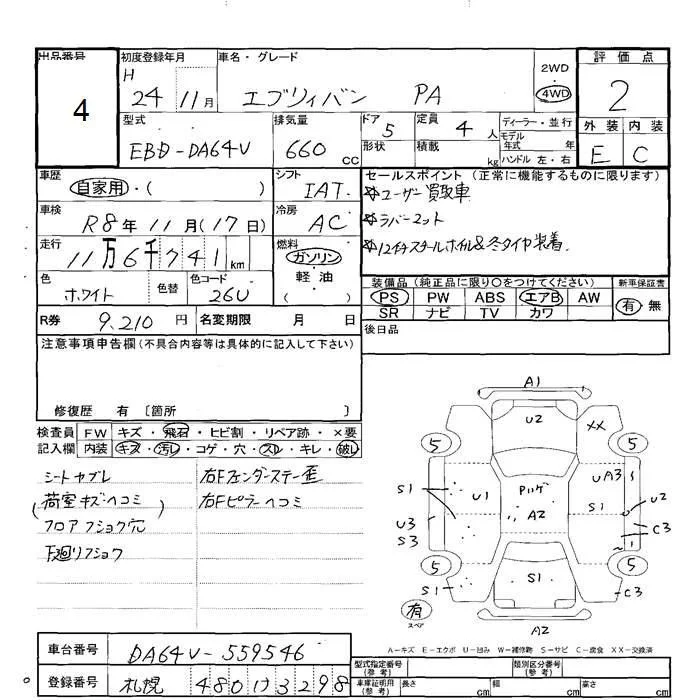 出品番号
4
初度登録年月
H 24 11月
車名・グレード
エブリィバン PA
2WD
4WD
評価点
2
外装 内装
E C
型式
EBD-DA64V
排気量
660 cc
ドア
5
定員
4 人
ディーラー・並行
モデル年式 年
形状
積載 kg
ハンドル 左・右
車歴
自家用・( )
シフト
IAT
セールスポイント(正常に機能するものに限ります)
☆ユーザー買取車
☆ラバーマット
☆12インチスチールホイル&冬タイヤ装着.
車検
R8年11月(17日)
冷房
AC
走行
11万6千741km
燃料
ガソリン
軽油
( )
色
ホワイト
色替
色コード
26U
装備品(純正品に限り〇をつけてください)
PS PW ABS エアB AW
SR ナビ TV カワ
新車保証書
有 無
R券 9,210円
名変期限 月 日
後日品
注意事項申告欄(不具合内容等は具体的に記入して下さい)
修復歴 有 〔箇所 〕
検査員記入欄
FW キズ・飛石・ヒビ割・リペア跡・×要
内装 キズ・汚レ・コゲ・穴・スレ・キレ・破レ
シートヤブレ
(荷室キズヘコミ)
フロアフショク穴
下廻リフショク
右Fフェンダーステー歪
右Fピラーヘコミ
A1
U2
XX
5 5
UA3
S1 U1 A2 S1 U2
U3
S3
C3
5 5
S1 S1 C3
有
スペア
A2
A-キズ E-エクボ U-凹み W-補修跡 S-サビ C-腐食 XX-交換済
車台番号
DA64V-559546
登録番号
札幌 480 け 3298
型式指定番号
(参考)
類別区分番号
(参考)
車庫証明用
(参考)
長さ cm
幅 cm
高 cm